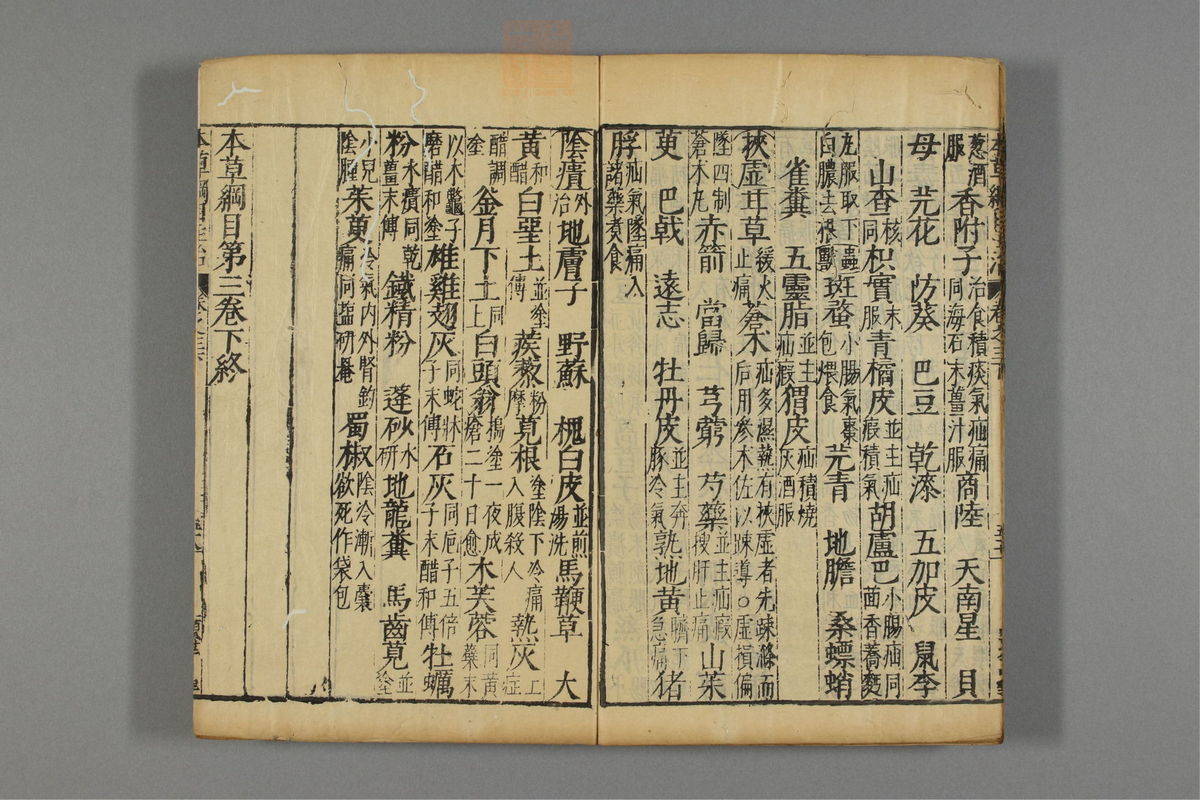 葱酒服 香附子 治食積痰氣疝痛同海石末薑汁服 商陸 天南星 貝
母 芫花 防葵 巴豆 乾漆 五加皮 鼠李
山查 核同 枳實 末服 青橘皮 並主疝瘕積氣 胡盧巴 小腸疝同茴香蕎麪
丸服取下白膿去根 斑蝥 小腸氣棗包煨食 芫青 地膽 桑螵蛸
雀糞 五靈脂 並主疝瘕 猬皮 疝積燒灰酒服
挾虛 甘草 緩火止痛 蒼朮 疝多濕熱有挾虛者先疎滌而后用參朮佐以疎導○虛損偏
墜四制蒼朮丸 赤箭 當歸 芎藭 芍藥 並主疝瘕搜肝止痛 山茱
萸 巴戟 遠志 牡丹皮 並主奔豚冷氣 熟地黃 臍下急痛 猪
脬 疝氣墜痛入諸藥煮食
陰㿉 外治 地膚子 野蘇 槐白皮 並煎湯洗 馬鞭草 大
黃 和醋 白堊土 並塗傅 蒺藜 粉摩 莧根 塗陰下冷痛入腹殺人 熱灰 上症
醋調塗 釜月下土 同上 白頭翁 搗塗一夜成瘡二十日愈 木芙蓉 同黃藥末
以木鼈子磨醋和塗 雄雞翅灰 同蛇牀子末傅 石灰 同巵子五倍子末醋和傅 牡蠣
粉 水㿉同乾薑末傅 鐵精粉 蓬砂 水研 地龍糞 馬齒莧 並塗
小兒陰腫 茱萸 冷氣內外腎釣痛同鹽研罨 蜀椒 陰冷漸入囊欲死作袋包
本草綱目第三卷下終